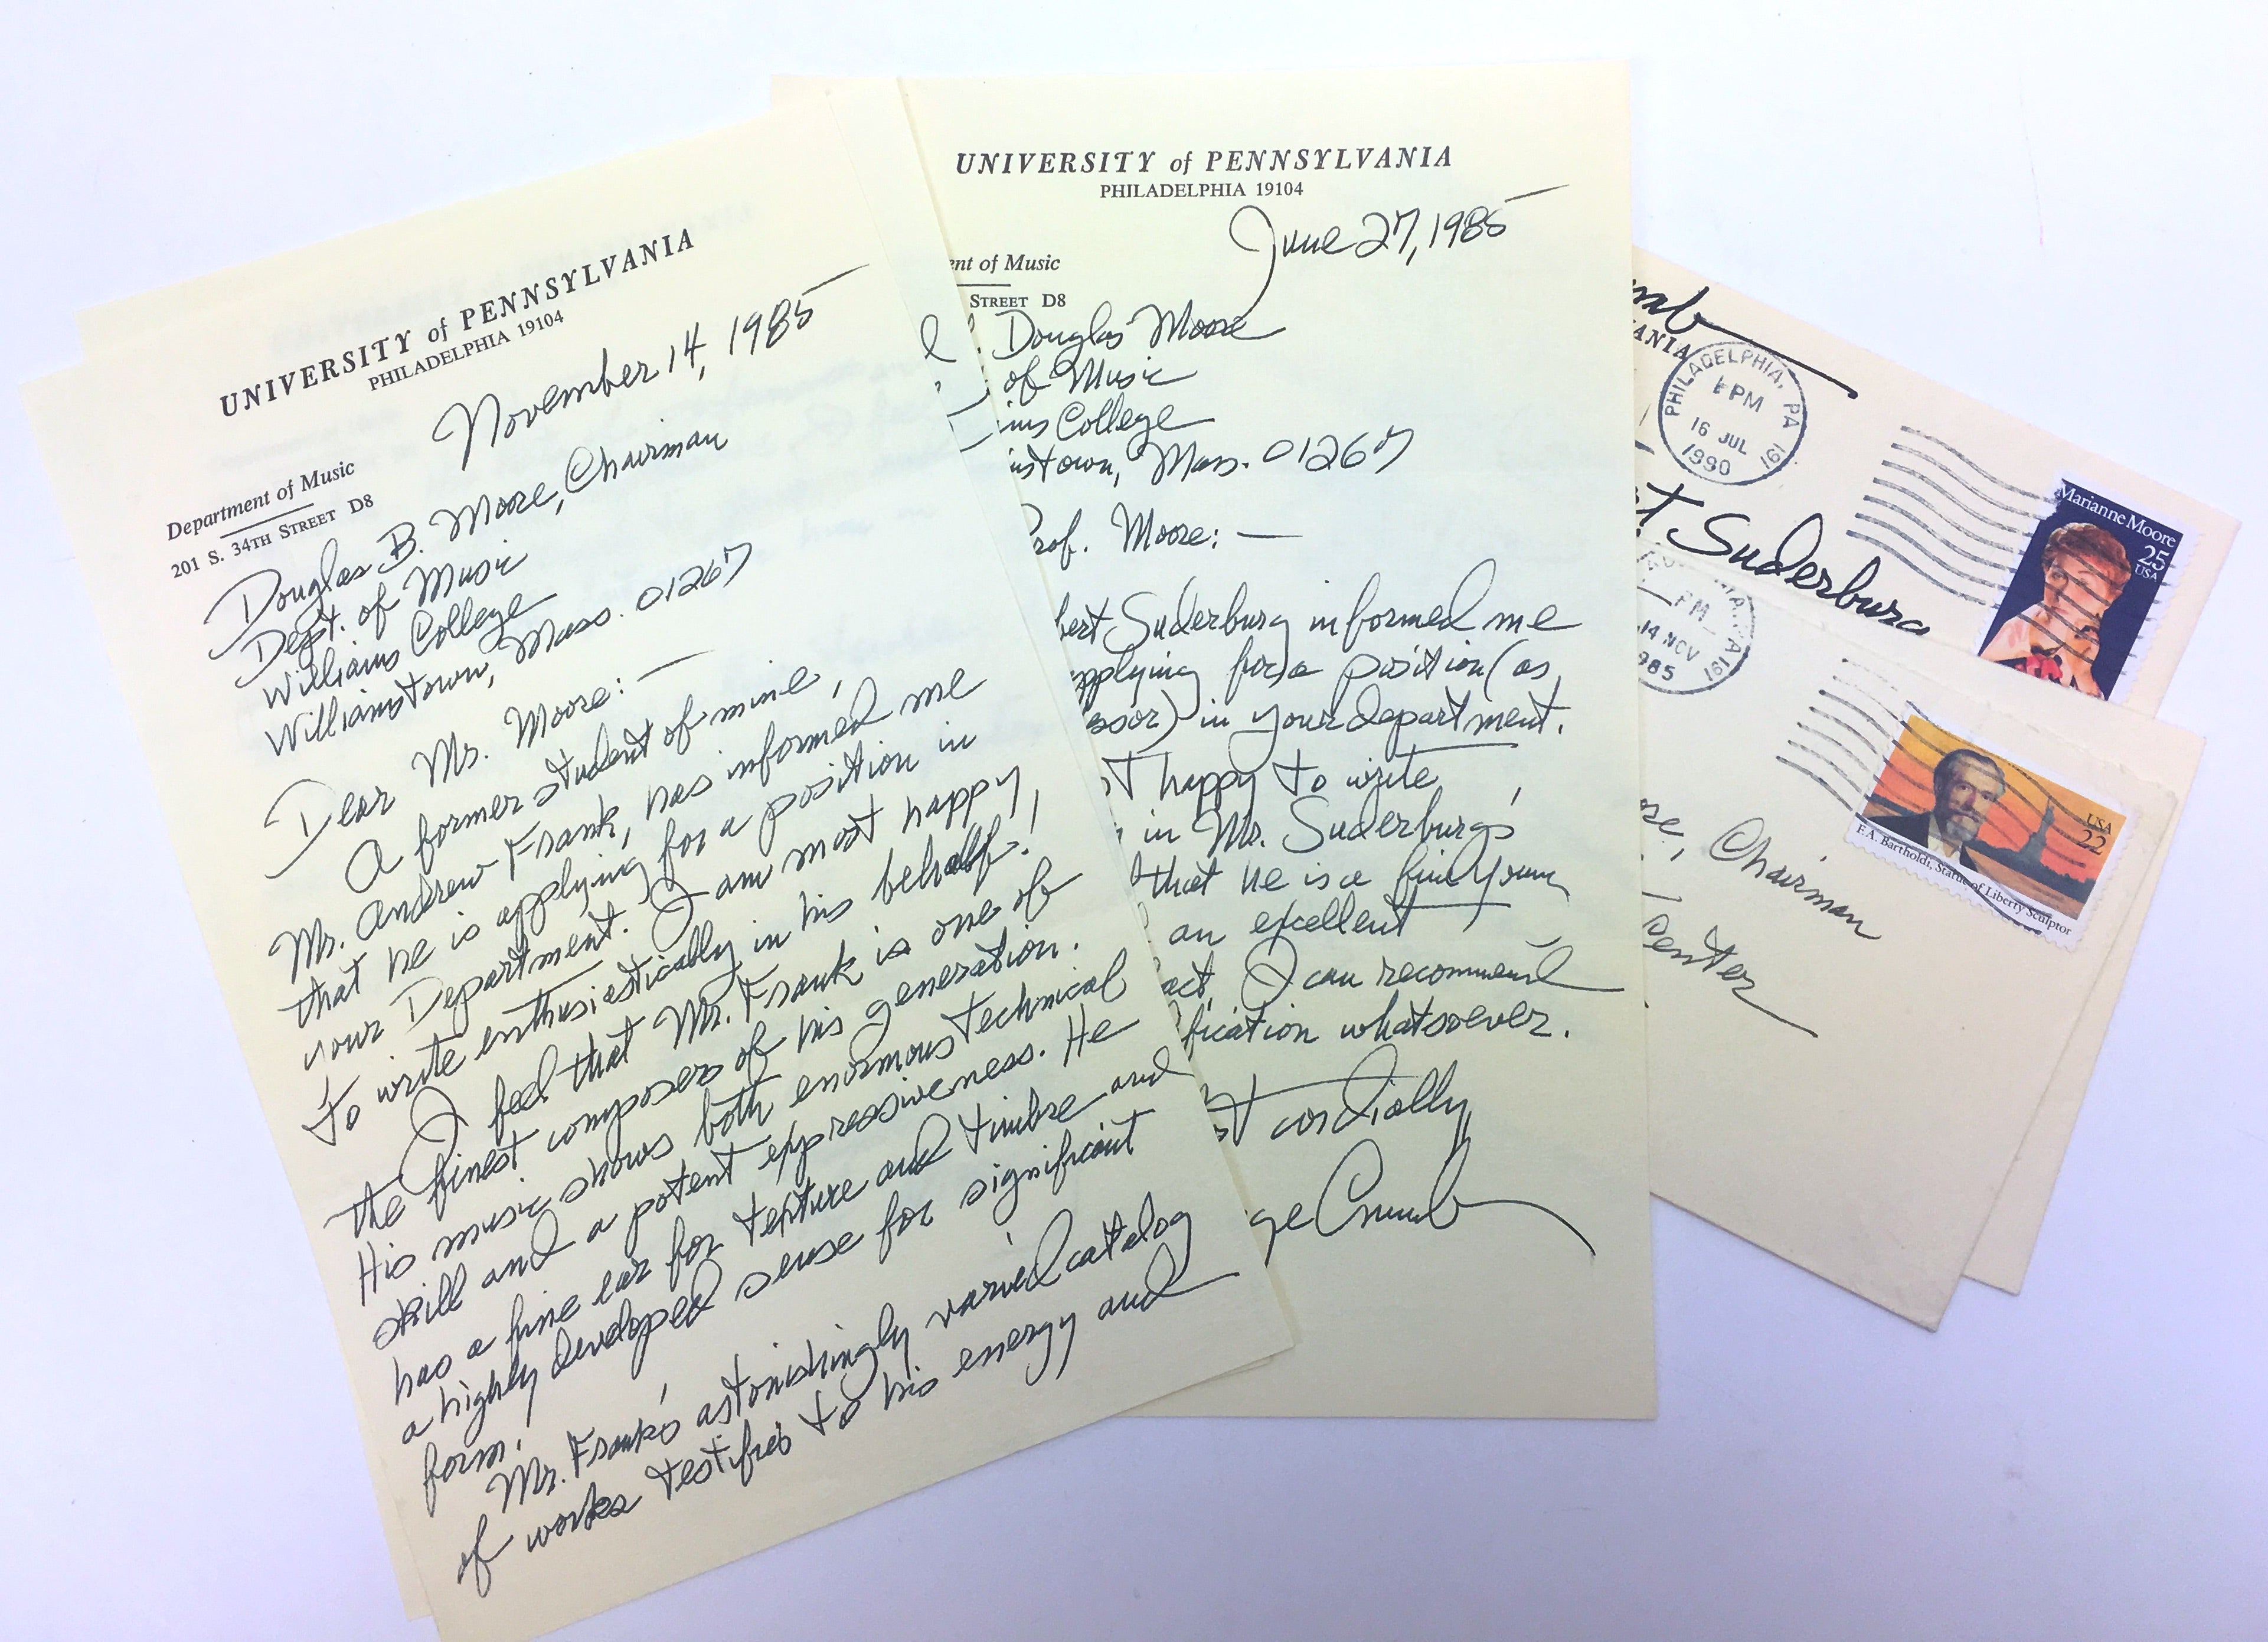 UNIVERSITY of PENNSYLVANIA
PHILADELPHIA 19104
November 14, 1985
Department of Music
201 S. 34TH STREET D8
Douglas B. Moore, Chairman
Dept. of Music
Williams College
Williamstown, Mass. 01267
Dear Mr. Moore: —
A former student of mine,
Mr. Andrew Frank, has informed me
that he is applying for a position in
your Department. I am most happy
to write enthusiastically in his behalf!
I feel that Mr. Frank is one of
the finest composers of his generation.
His music shows both enormous technical
skill and a potent expressiveness. He
has a fine ear for texture and timbre and
a highly developed sense for significant
form.
Mr. Frank's astonishingly varied catalog
of works testifies to his energy and
UNIVERSITY of PENNSYLVANIA
PHILADELPHIA 19104
June 27, 1985
ent of Music
STREET D8
Douglas Moore
of Music
ms College
nstown, Mass. 01267
Prof. Moore: —
bert Suderburg informed me
applying for a position (as
ssor) in your department.
st happy to write
in Mr. Suderburg's
that he is a fine young
an excellent
act, I can recommend
fication whatsoever.
st cordially,
ge Crumb
mb
ANIA
PHILADELPHIA, PA 191
PM
16 JUL
1990
Marianne Moore
25
USA
t Suderburg
PM
14 NOV
1985
PA 191
USA
22
F.A. Bartholdi, Statue of Liberty Sculptor
ore, Chairman
Center